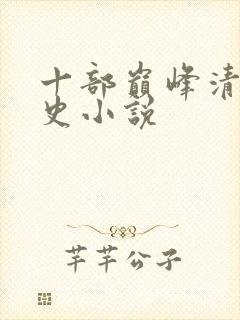 十部巅峰清
史小说
芊芊公子